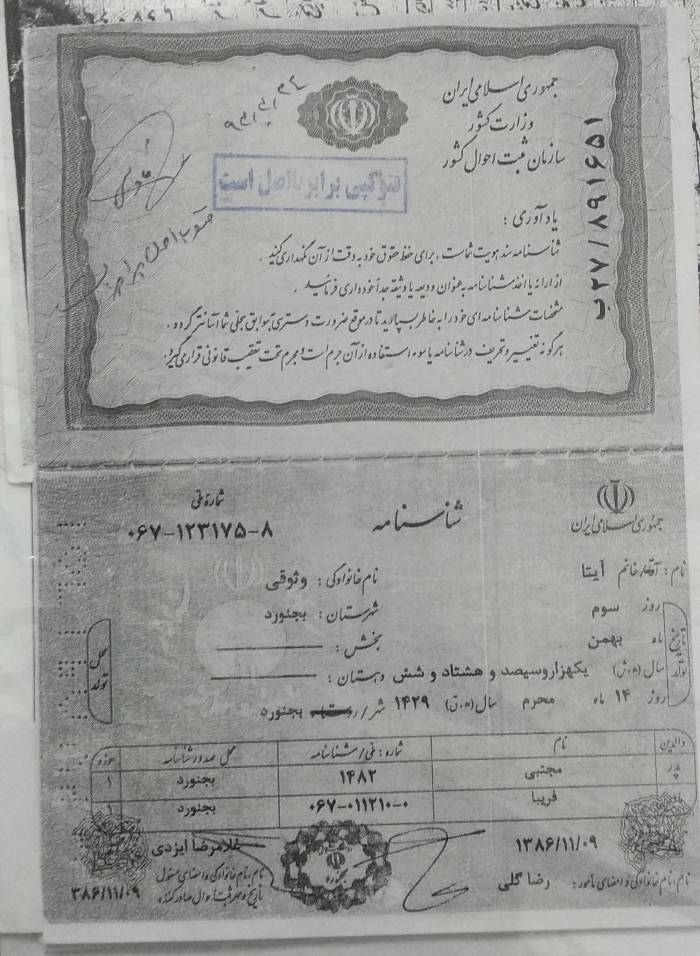 جمهوری اسلامی ایران
وزارت کشور
سازمان ثبت احوال کشور
۹۴/۲/۲۴
فتوکپی برابر با اصل است
ب۲۷/۸۹۱۶۵۱
یادآوری :
شناسنامه سند هویت شماست ، برای حفظ حقوق خود به دقت از آن نگهداری کنید .
از ارائه یا اخذ شناسنامه به عنوان ودیعه یا وثیقه جداً خودداری فرمائید .
مشخصات شناسنامه ای خود را به خاطر بسپارید تا در موقع ضرورت دسترسی به سوابق سجلی شما آسانتر گردد .
هرگونه تغییر و تحریف در شناسنامه یا سوء استفاده از آن جرم است و مجرم تحت تعقیب قانونی قرار می گیرد .
جمهوری اسلامی ایران
شناسنامه
شماره ملی
۰۶۷-۱۲۳۱۷۵-۸
نام : آقا/خانم آیتا
نام خانوادگی : وثوقی
تاریخ تولد
روز سوم
ماه بهمن
سال (ه.ش) یکهزاروسیصد و هشتاد و شش
روز ۱۴ ماه محرم سال (ه.ق) ۱۴۲۹
محل تولد
شهرستان : بجنورد
بخش :
دهستان :
شهر/روستا بجنورد
والدین نام شماره : ملی/شناسنامه محل صدور شناسنامه حوزه
پدر مجتبی ۱۴۸۲ بجنورد ۱
فریبا ۰۶۷-۰۱۱۲۱۰-۰ بجنورد ۱
۱۳۸۶/۱۱/۰۹
نام، نام خانوادگی و امضای مأمور : رضا گلی
غلامرضا ایزدی
نام، نام خانوادگی و امضای مسئول
تاریخ و مهر ثبت احوال صادرکننده
۳۸۶/۱۱/۰۹